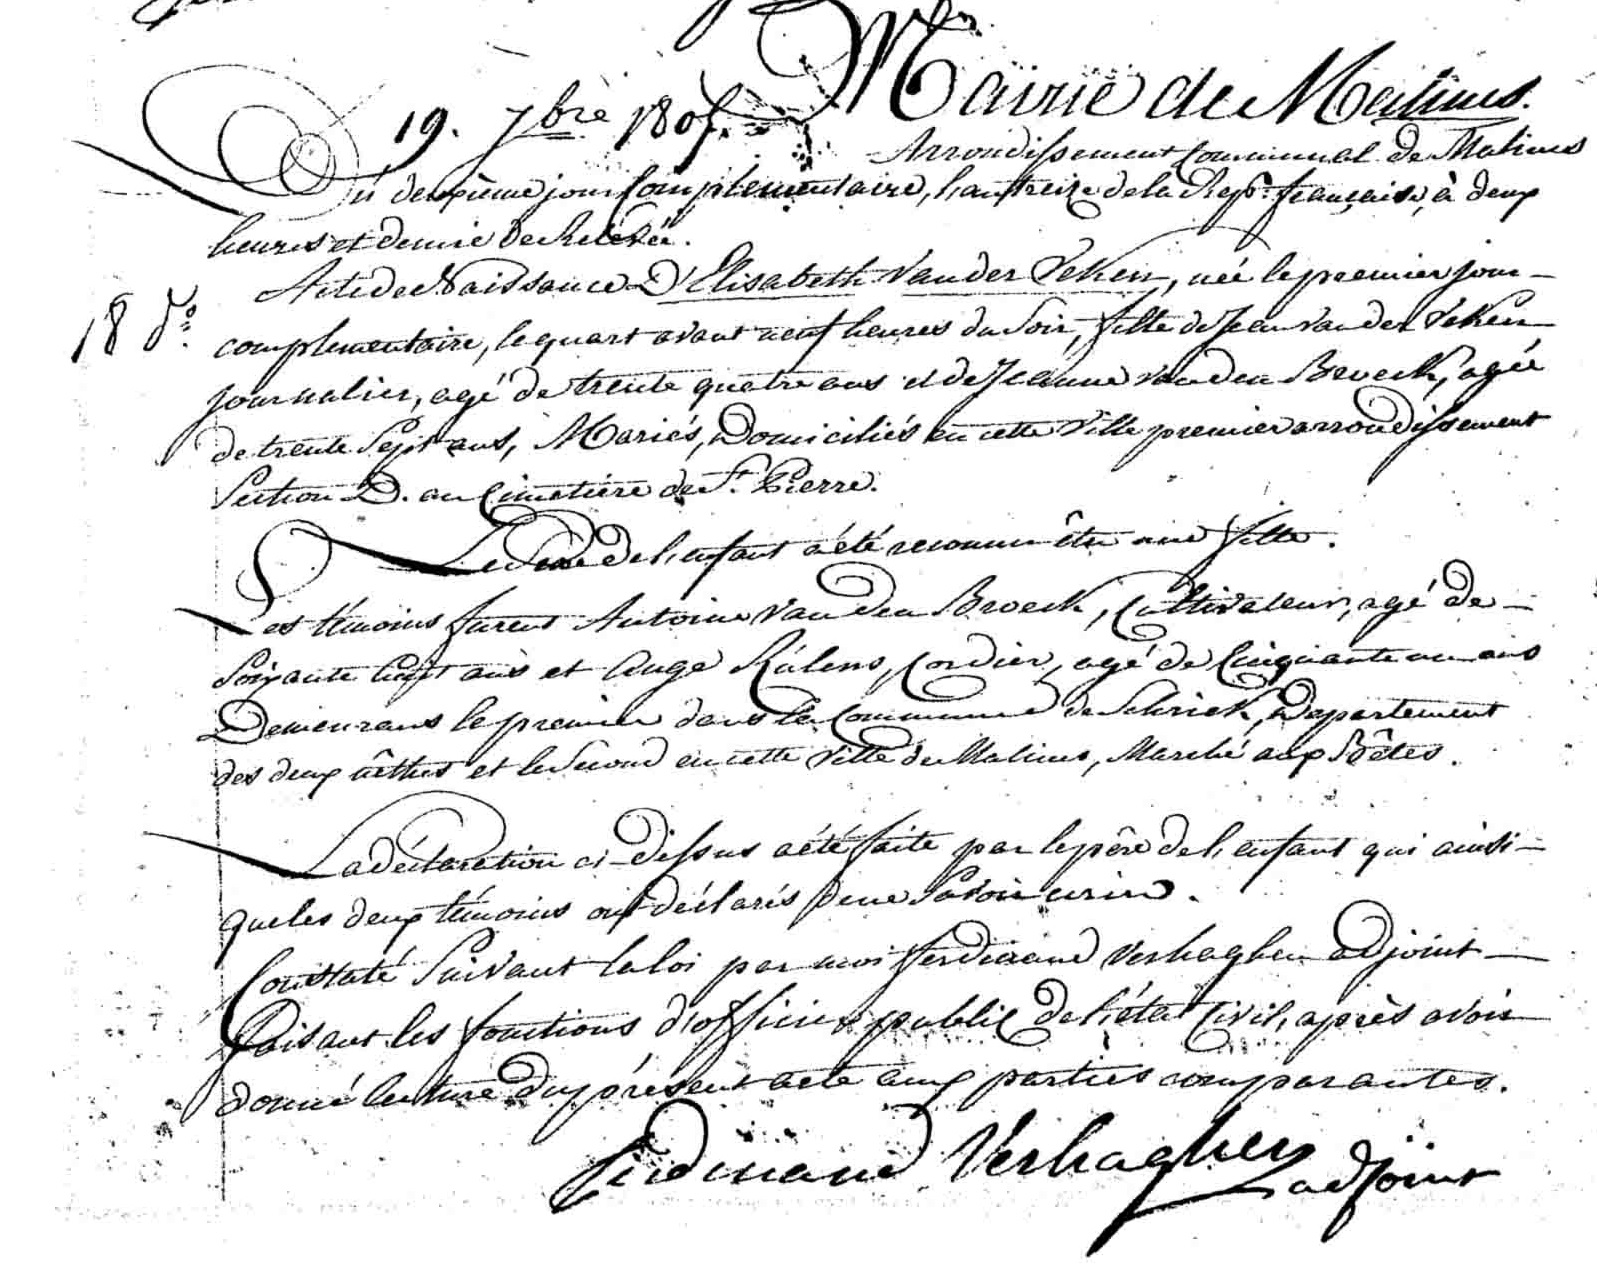 Mairie de Malines.
19. 7bre 1805.
Arrondissement Communal de Malines
Du deuxième jour Complementaire, l'an treize de la Rep. française, à deux
heures et demie de Relevée.
Acte de Naissance D'Elisabeth Van der Veken, née le premier jour
18 do
complementaire, le quart avant neuf heures du Soir, fille de Jean Van der Veken
journalier, agé de trente quatre ans et de Jeanne Van den Broeck, agée
de trente Sept ans, Mariés, Domiciliés en cette Ville premier arrondissement
Section D. au Cimetière de St. Pierre.
Le Sexe de l'enfant a été reconnu être une fille.
Les témoins furent Antoine Van den Broeck, Cultivateur, agé de
Soixante huit ans et Ange Rulens, Cordier, agé de Cinquante un ans
Demeurans le premier dans la Commune de Schriek, Departement
des deux nêthes et le Second en cette Ville de Malines, Marché aux Bêtes.
La déclaration ci-Dessus a été faite par le père de l'enfant qui ainsi
que les deux témoins ont déclarés de ne Savoir écrire.
Constaté Suivant la loi par moi ferdinand Verhaghen adjoint
faisant les fonctions d'officier public de l'état Civil, après avoir
donné lecture du présent acte aux parties comparantes.
Ferdinand Verhaghen adjoint